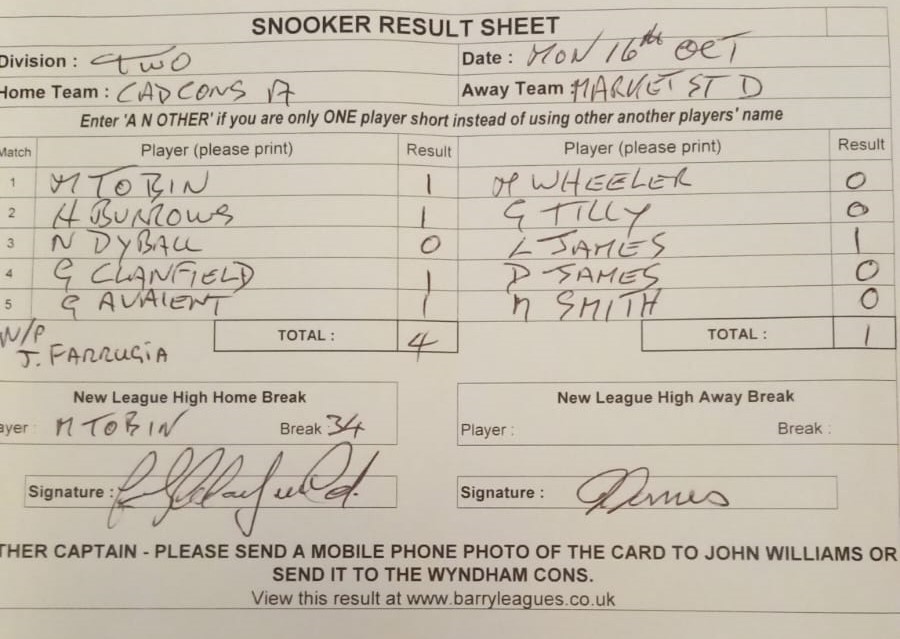 SNOOKER RESULT SHEET
Division : TWO Date : MON 16th OCT
Home Team : CADCONS A Away Team : MARKET ST D
Enter 'A N OTHER' if you are only ONE player short instead of using other another players' name
Match Player (please print) Result Player (please print) Result
1 M TOBIN 1 M WHEELER 0
2 H BURROWS 1 G TILLY 0
3 N DYBALL 0 L JAMES 1
4 G CLANFIELD 1 D JAMES 0
5 G AVAIENT 1 N SMITH 0
N/P
J. FARRUGIA
TOTAL : 4 TOTAL : 1
New League High Home Break New League High Away Break
ayer : M TOBIN Break : 34 Player : Break :
Signature : Signature :
THER CAPTAIN - PLEASE SEND A MOBILE PHONE PHOTO OF THE CARD TO JOHN WILLIAMS OR
SEND IT TO THE WYNDHAM CONS.
View this result at www.barryleagues.co.uk